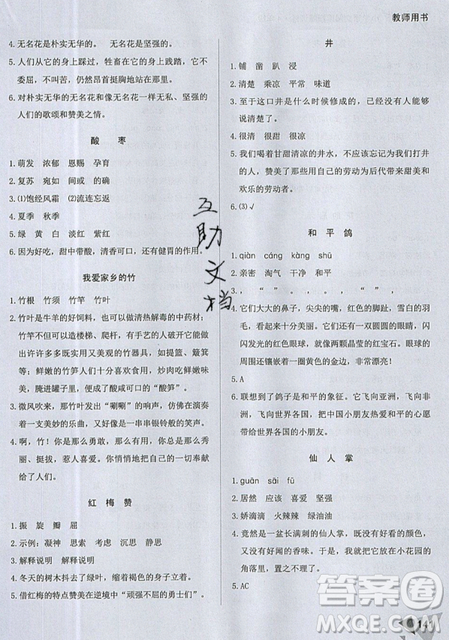 教师用书
4. 无名花是朴实无华的。无名花是坚强的。
5. 人们从它们的身上踩过，牲畜也在它的地盘上践踏，它不埋怨。太阳的曝晒，严寒的折磨和干旱的威胁，它不屈服。
6. 对朴实无华的无名花和像无名花一样朴实、坚强的人们的歌颂和赞美之情。
酸枣
1. 萌发 浓郁 恩赐 孕育
2. 复苏 宛如 闻或
3. (1)饱经风霜 (2)流连忘返
4. 夏季 秋季
5. 绿 黄 白 淡红 紫红
6. 因为好吃，甜中带酸，清香可口，还有健胃的作用。
我爱家乡的竹
1. 竹根 竹须 竹笋
2. 竹叶是羊的好饲料，还可以制作清热解毒的药材；竹竿不但可以造楼梯、爬杆，有手艺的人把它开发出许多实用又美观的竹器具，如提篮、簸箕等；鲜嫩的竹笋人们可拿来炒鲜嫩味美，腌进罐子里，就变成了酸咸可口的“酸笋”。
3. 微风吹来，那片竹林发出“唰唰”的声音，仿佛在演奏美妙的乐曲，又似一串串银铃般的笑声。
4. 啊，竹！你是那么勇敢，那么坚强，那么可敬，那么优秀，惹人喜爱。我怎能不赞美你呢！
红梅赞
1. 振 旋 瓣 屈
2. 示例：凝神 思索 考虑 沉思
3. 解释说明 解释说明
4. 冬天的树木抖去了绿叶，像骨瘦如柴的老人。
5. 借红梅的特点赞美逆境中“顽强不屈的勇士们”。
井
1. 铺 凿 趴 浸
2. 清楚 乘凉 平常 味道
3. 至于这口井是什么年代的，没有一个人能够说清楚了。
4. 很清 很甜
5. 我们喝着甘甜清凉的井水，不应该忘记为我们打井的人，赞美了那些用自己的劳动为后代带来甜美和欢乐的劳动者。
6. (3)√
和平鸽
1. qián cáng kàng
2. 亲密 淘气 干净 和平
3. 可是
4. 它们大大的鼻子，尖尖的嘴，红色的脚趾，雪白的羽毛，看上去十分美丽；它们还有一双圆圆的眼睛，闪闪发光的眼球就像两颗晶莹的红宝石。眼球的周围还镶嵌了一圈黄色的金边，非常漂亮！
5. A
6. 联想到了鸽子是和平的象征。它飞向亚洲，飞向欧洲，飞向全世界，把中国人民热爱和平的心愿带给世界各国的小朋友。
仙人掌
1. guān sāi fú
2. 居然 应该 喜欢 普通
3. 娇滴滴 火辣辣 绿油油
4. 竟然是一盆长满刺的仙人掌，它显得又土气又难看，我很不喜欢，就把它随手扔在楼下的小花园角落里。
5. AC
互助文档
答案圈
MXQE.COM